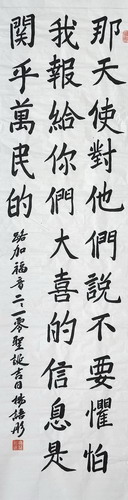 那天使對他們說不要懼怕
我報給你們大喜的信息是
關乎萬民的
路加福音二二零聖誕吉日楊語彤